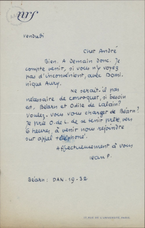 nrf
vendredi
Cher André
Bien. À Demain donc. Je
compte venir, si vous n'y voyez
pas d'inconvénient, avec Domi-
nique Aury.
Ne serait-il pas
nécessaire de convoquer, si besoin
est, Béarn et D. de Lalain?
Voulez-vous vous charger de Béarn?
Je prie D. de L. de se tenir prête, vers
6 heures, à venir nous rejoindre
sur appel téléphoné.
Affectueusement à vous
Jean P.
Béarn: DAN. 19-38